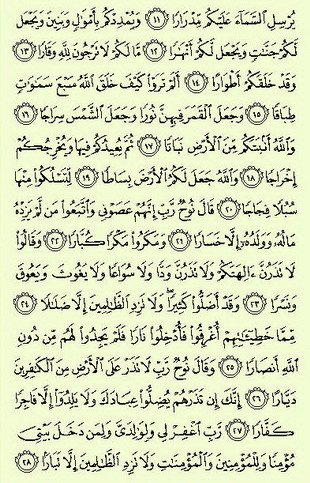 يُرْسِلِ السَّمَاءَ عَلَيْكُم مِّدْرَارًا ١١ وَيُمْدِدْكُم بِأَمْوَالٍ وَبَنِينَ وَيَجْعَل
لَّكُمْ جَنَّاتٍ وَيَجْعَل لَّكُمْ أَنْهَارًا ١٢ مَّا لَكُمْ لَا تَرْجُونَ لِلَّهِ وَقَارًا ١٣
وَقَدْ خَلَقَكُمْ أَطْوَارًا ١٤ أَلَمْ تَرَوْا كَيْفَ خَلَقَ اللَّهُ سَبْعَ سَمَاوَاتٍ
طِبَاقًا ١٥ وَجَعَلَ الْقَمَرَ فِيهِنَّ نُورًا وَجَعَلَ الشَّمْسَ سِرَاجًا ١٦
وَاللَّهُ أَنبَتَكُم مِّنَ الْأَرْضِ نَبَاتًا ١٧ ثُمَّ يُعِيدُكُمْ فِيهَا وَيُخْرِجُكُمْ
إِخْرَاجًا ١٨ وَاللَّهُ جَعَلَ لَكُمُ الْأَرْضَ بِسَاطًا ١٩ لِّتَسْلُكُوا مِنْهَا
سُبُلًا فِجَاجًا ٢٠ قَالَ نُوحٌ رَّبِّ إِنَّهُمْ عَصَوْنِي وَاتَّبَعُوا مَن لَّمْ يَزِدْهُ
مَالُهُ وَوَلَدُهُ إِلَّا خَسَارًا ٢١ وَمَكَرُوا مَكْرًا كُبَّارًا ٢٢ وَقَالُوا
لَا تَذَرُنَّ آلِهَتَكُمْ وَلَا تَذَرُنَّ وَدًّا وَلَا سُوَاعًا وَلَا يَغُوثَ وَيَعُوقَ
وَنَسْرًا ٢٣ وَقَدْ أَضَلُّوا كَثِيرًا ۖ وَلَا تَزِدِ الظَّالِمِينَ إِلَّا ضَلَالًا ٢٤
مِّمَّا خَطِيئَاتِهِمْ أُغْرِقُوا فَأُدْخِلُوا نَارًا فَلَمْ يَجِدُوا لَهُم مِّن دُونِ
اللَّهِ أَنصَارًا ٢٥ وَقَالَ نُوحٌ رَّبِّ لَا تَذَرْ عَلَى الْأَرْضِ مِنَ الْكَافِرِينَ
دَيَّارًا ٢٦ إِنَّكَ إِن تَذَرْهُمْ يُضِلُّوا عِبَادَكَ وَلَا يَلِدُوا إِلَّا فَاجِرًا
كَفَّارًا ٢٧ رَّبِّ اغْفِرْ لِي وَلِوَالِدَيَّ وَلِمَن دَخَلَ بَيْتِيَ
مُؤْمِنًا وَلِلْمُؤْمِنِينَ وَالْمُؤْمِنَاتِ وَلَا تَزِدِ الظَّالِمِينَ إِلَّا تَبَارًا ٢٨